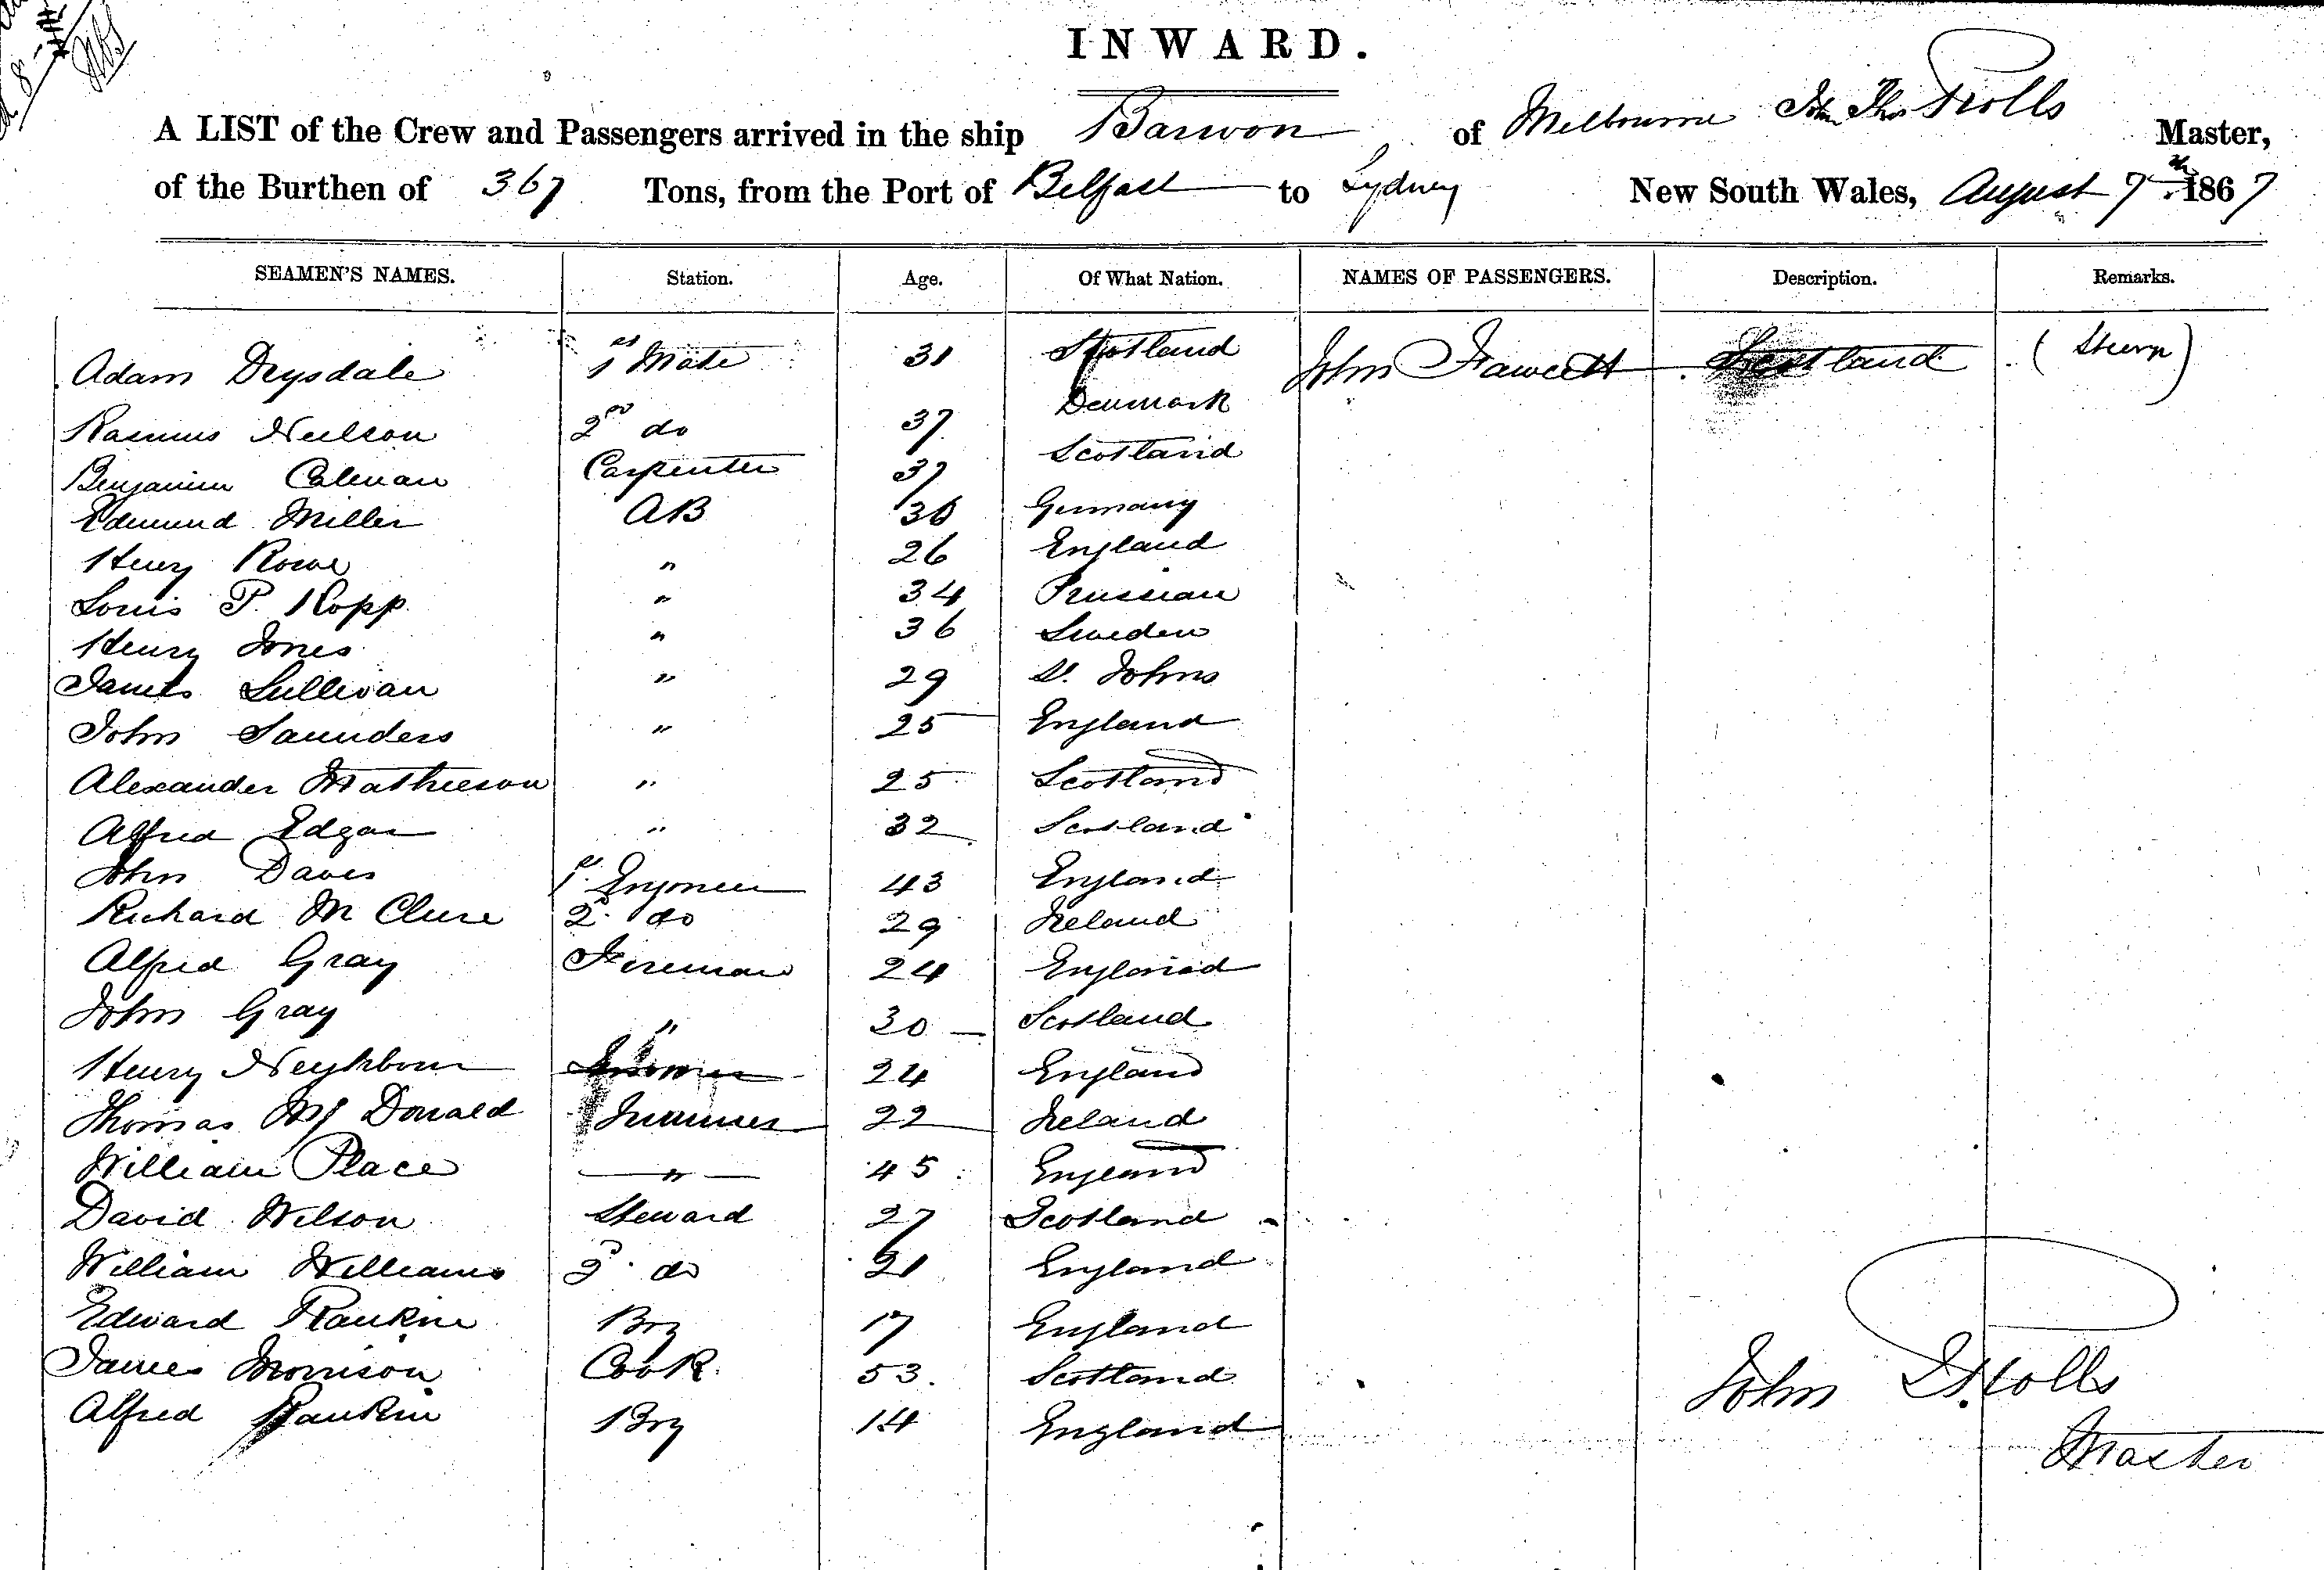 INWARD.
A LIST of the Crew and Passengers arrived in the ship Barwon of Melbourne John Thos Rolls Master,
of the Burthen of 367 Tons, from the Port of Belfast to Sydney New South Wales, August 7th 1867
SEAMEN'S NAMES. Station. Age. Of What Nation. NAMES OF PASSENGERS. Description. Remarks.
Adam Drysdale 1st Mate 31 Scotland John Fawcett Scotland (Steerge)
Rasmus Neilson 2nd do 37 Denmark
Benjamin Calman Carpenter 37 Scotland
Edmund Miller AB 36 Germany
Henry Rowe " 26 England
Louis P. Kopp " 34 Prussian
Henry Jones " 36 Sweden
James Sullivan " 29 St. Johns
John Saunders " 25 England
Alexander Mathieson " 25 Scotland
Alfred Edgar " 32 Scotland
John Daves 1st Engineer 43 England
Richard McClure 2d do 29 Ireland
Alfred Gray Fireman 24 England
John Gray " 30 Scotland
Henry Neighbour 24 England
Thomas Mc Donald Trimmer 22 Ireland
William Place " 45 England
David Wilson Steward 27 Scotland
William Williams 2d do 21 England
Edward Rankin Boy 17 England
James Morrison Cook 53. Scotland
Alfred Rankin Boy 14 England
John T Rolls
Master